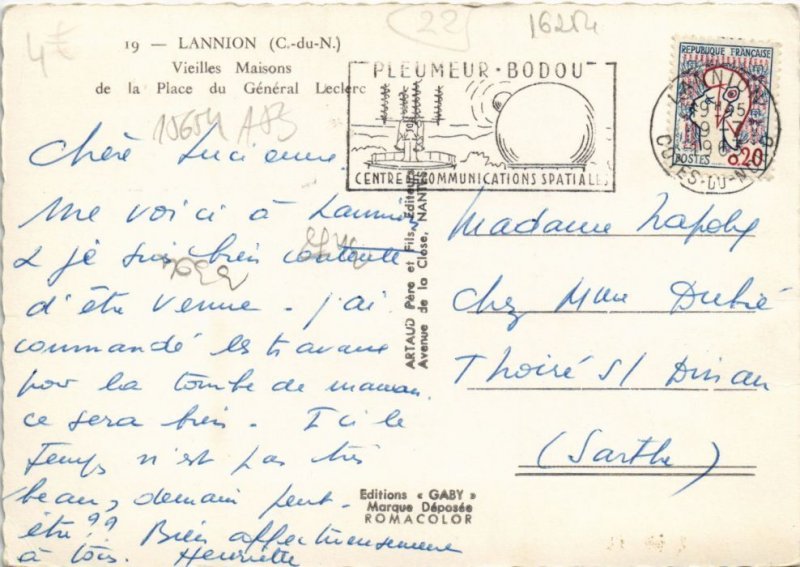 4€
22
16284
19 — LANNION (C.-du-N.)
Vieilles Maisons
de la Place du Général Leclerc
PLEUMEUR-BODOU
CENTRE COMMUNICATIONS SPATIALES
REPUBLIQUE FRANÇAISE
POSTES
0,20
LANNION
COTES-DU-NORD
15654 A85
Chère Lucienne.
Me voici à Lannion
& je suis bien contente
d'être venue. J'ai
commandé les travaux
pour la tombe de maman.
ce sera bien. Ici le
temps n'est pas très
beau, demain peut-
être ?? Bien affectueusement
à tois. Henriette
ARTAUD Père et Fils, Editeurs
Avenue de la Close, NANTES
Editions « GABY »
Marque Déposée
ROMACOLOR
Madame
Chez Mme Dubié
Thoiré s/ Dinan
(Sarthe)